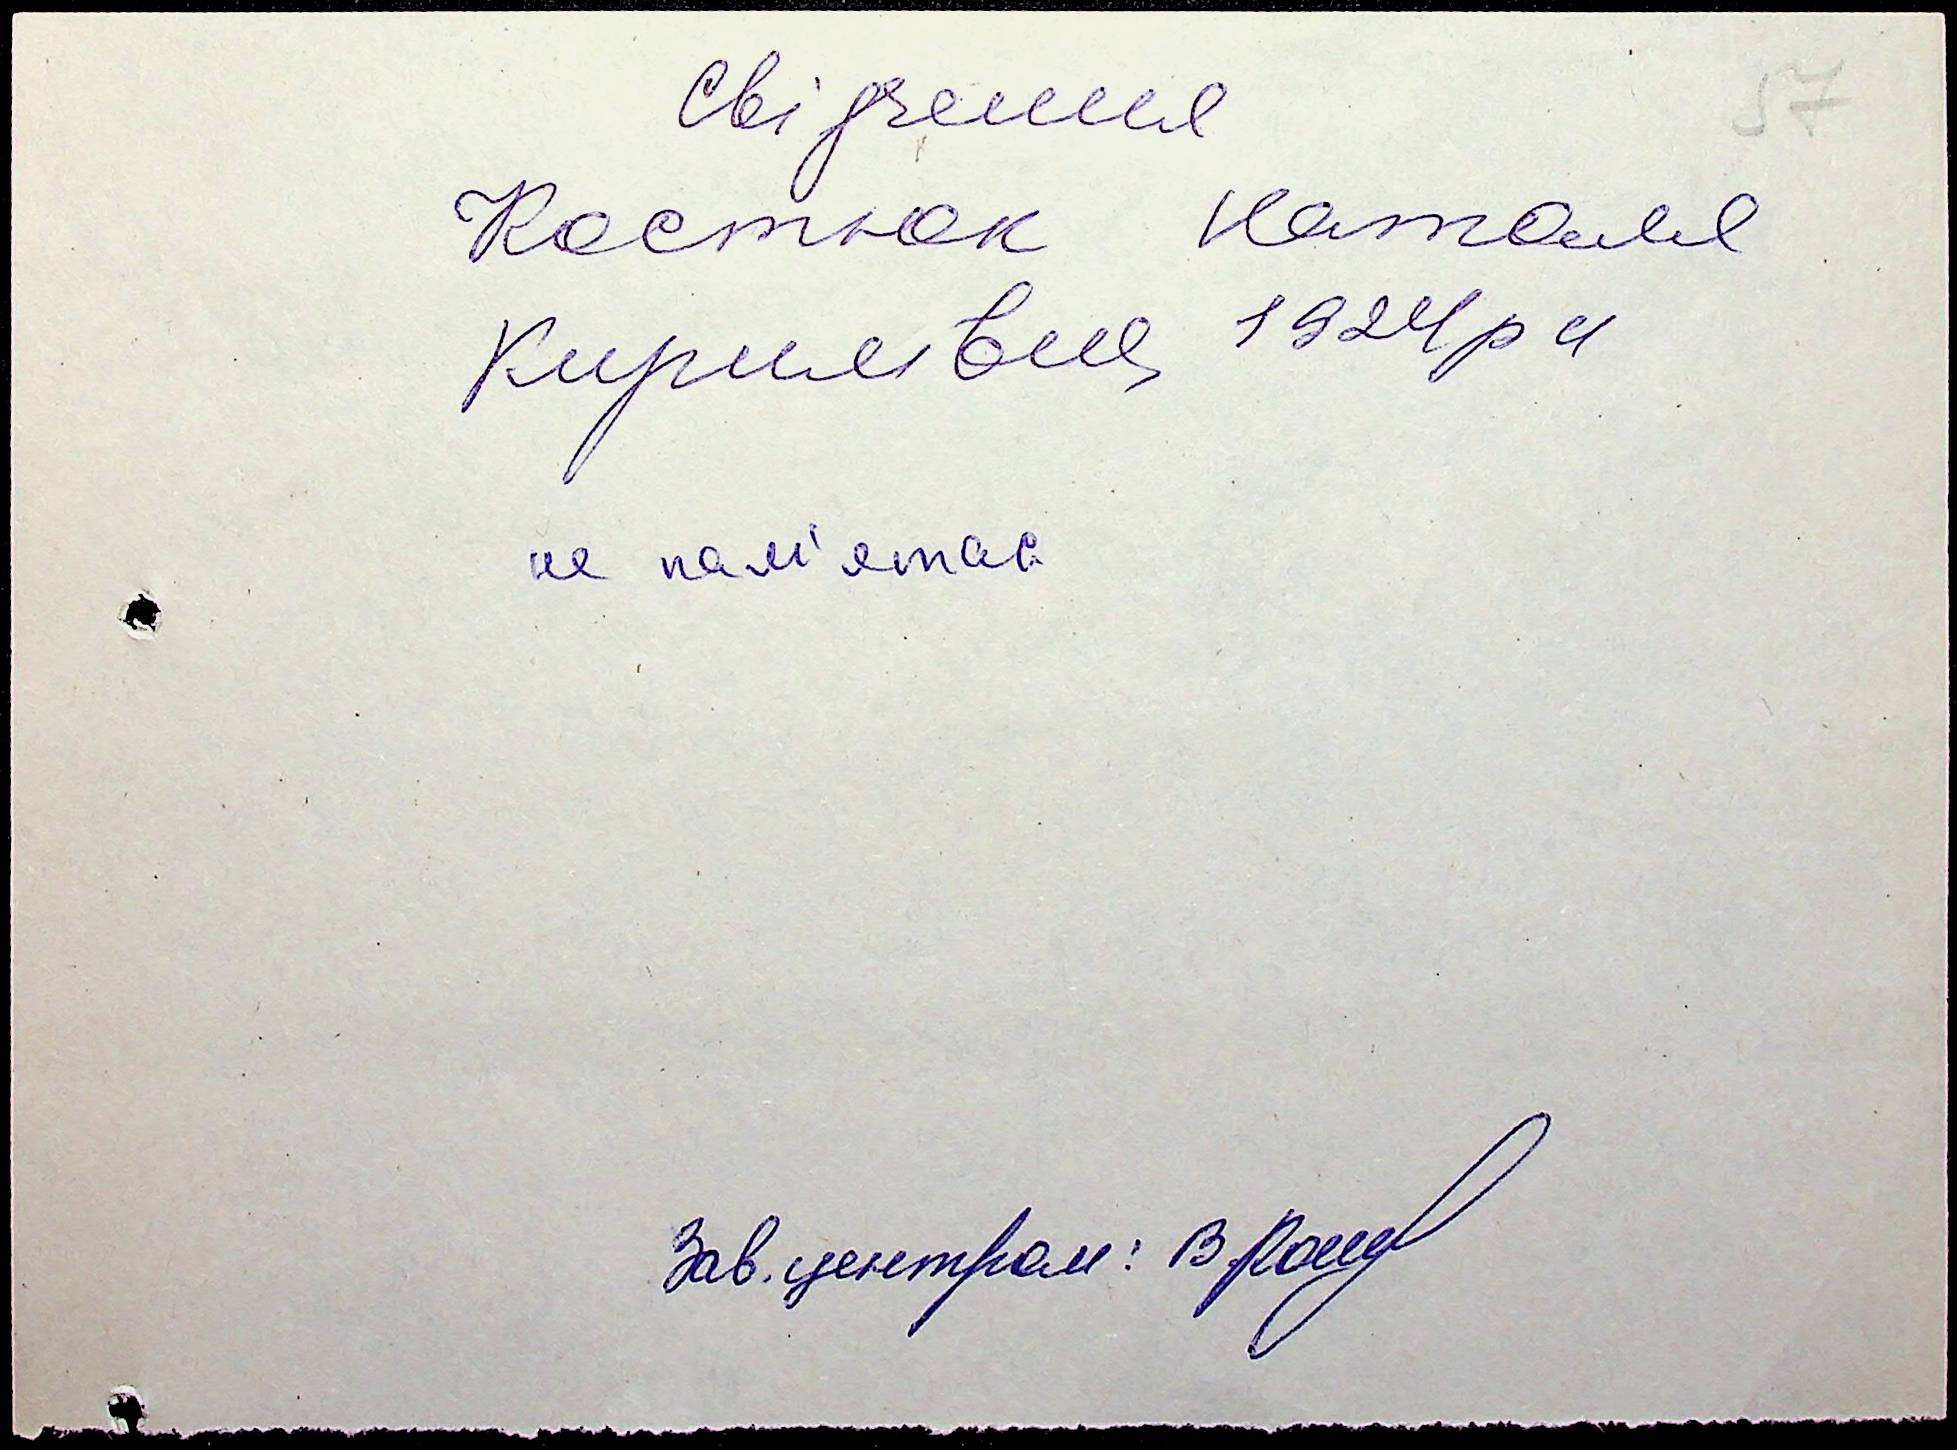 57
Свідчення
Костюк Наталя
Кирилівна 1924 р н
не пам'ятає
Зав. центром: В